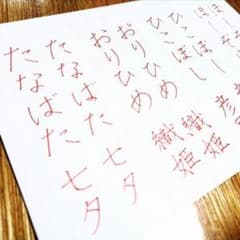 ひこほし 彦
おりひめ 織姫
おりひめ 織姫
たなばた 七夕
たなばた 七夕